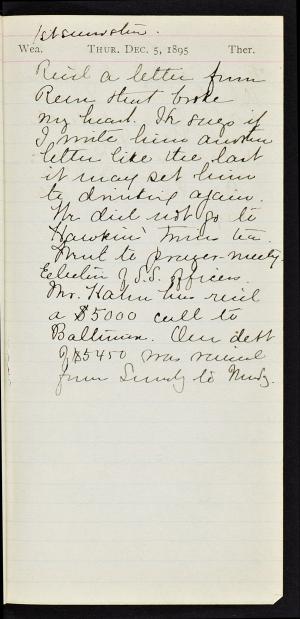 1st snow storm.
Wea. THUR. DEC. 5, 1895 Ther.
Recd a letter from
that broke
my heart. He says if
I write him another
letter like the last
it may set him
to drinking again.
We did not go to
Hawkins' tea.
Went to prayer-meetg.
Election of S.S. officers.
Mr. Hahn has recd
a $5000 call to
Baltimore. Our debt
of $5450 was raised
from Sunday to